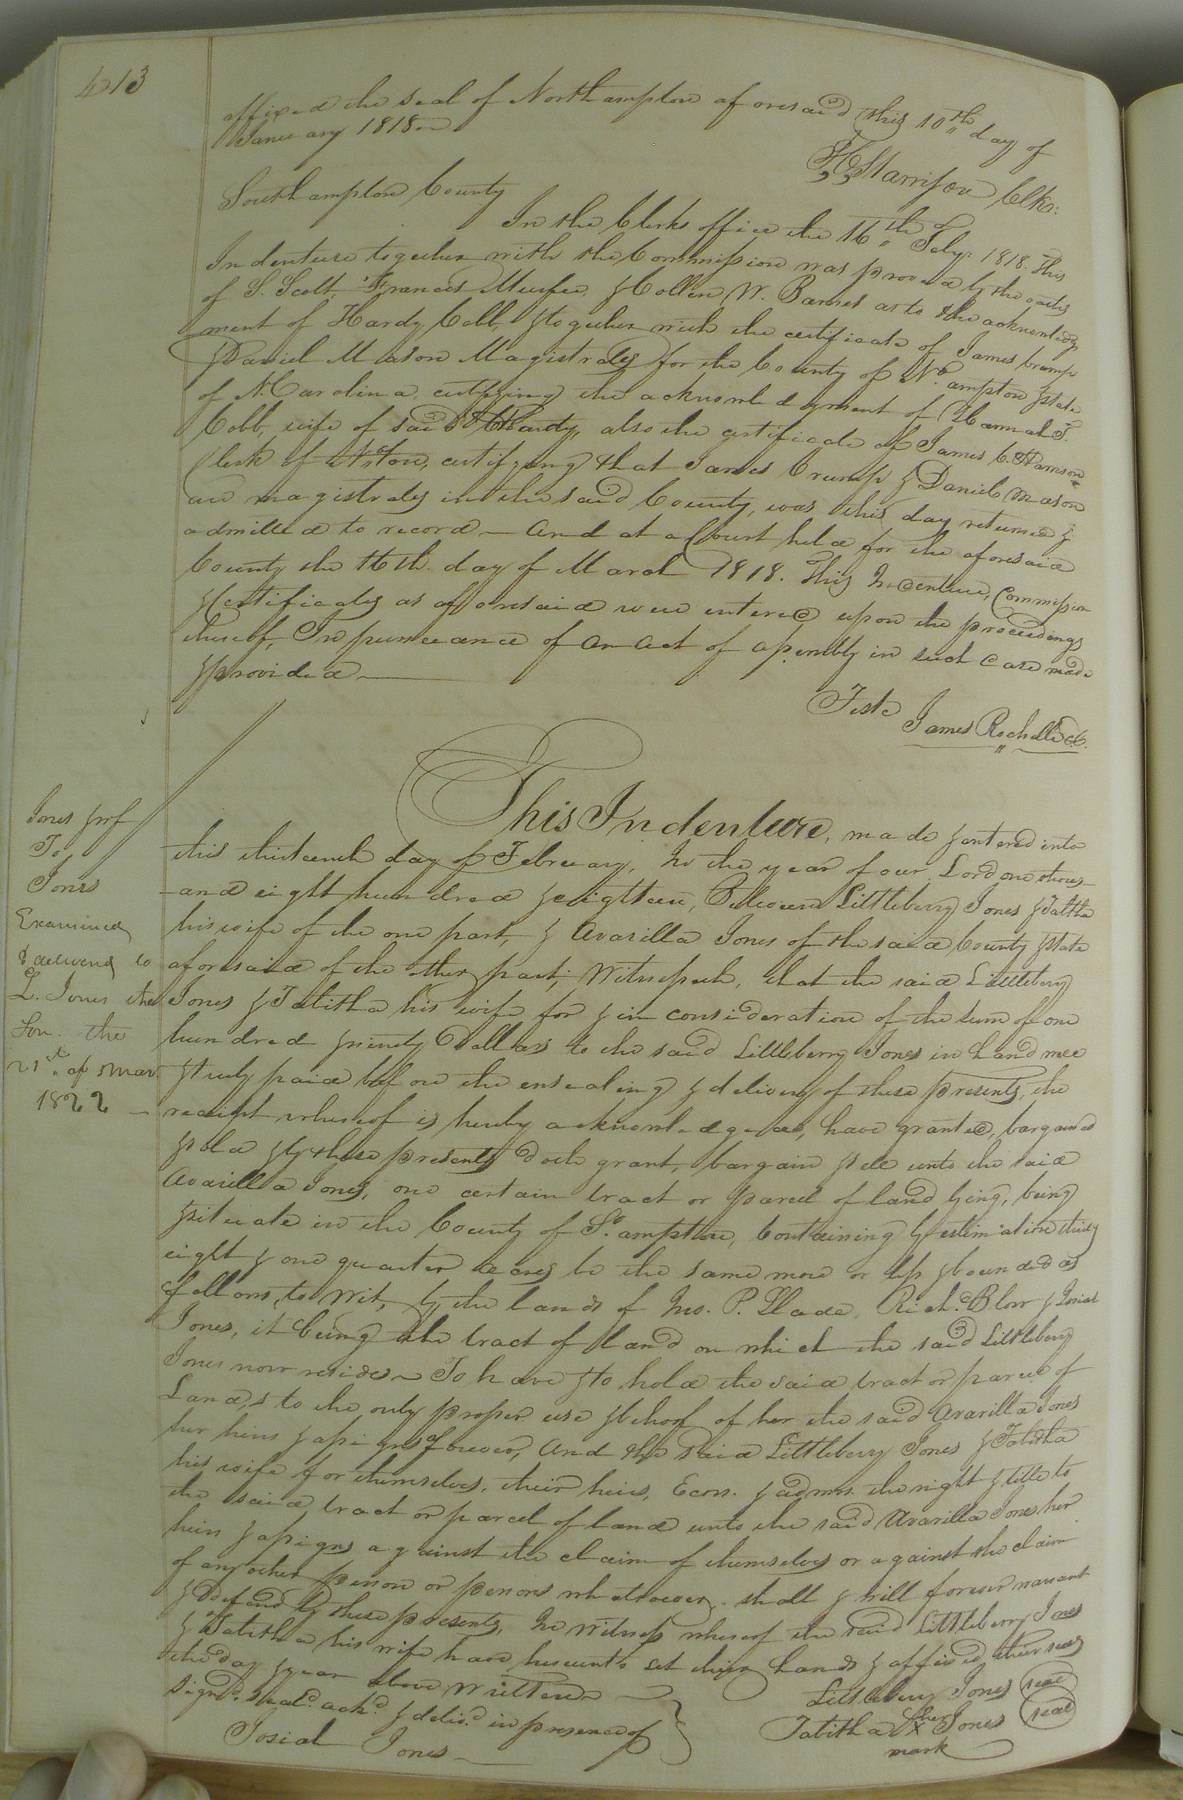 413
affixed the seal of Northampton aforesaid this 10th day of
January 1818
Harrison Clk.
Southampton County
In the Clerks office the 16th Feby. 1818. This
Indenture together with the Commission was proved by the oaths
of S. Scott, Frances Murfee & Collin W. Barnes as to the acknowledg
ment of Hardy Cobb, & together with the certificate of James Crump
& Daniel Mason Magistrates for the County of No. ampton & State
of N. Carolina, certifying the acknowledgment of Hannah T.
Cobb, wife of said Hardy, also the certificate of James C. Harrison
Clerk of certifying that James Crump & Daniel Mason
are magistrates in the said County, was this day returned &
admitted to record – And at a Court held for the aforesaid
County the 16th day of March 1818. This Indenture, Commission
& Certificates as aforesaid were entered upon the proceedings
thereof, In pursuance of an act of assembly in such case made
& provided
Teste James Rochelle C.
Jones & wf
To
Jones
Examined
& delivered to
L. Jones the
Son. the
21st of Mar.
1822
This Indenture, made & entered into
this thirteenth day of February, In the year of our Lord one thous-
and eight hundred & eighteen, Between Littleberry Jones & Tabitha
his wife of the one part, & Avarilla Jones of the said County & State
aforesaid of the other part, Witnesseth, that the said Littleberry
Jones & Tabitha his wife for & in consideration of the sum of one
hundred & ninety Dollars to the said Littleberry Jones in hand well
& truly paid before the ensealing & delivery of these presents, the
receipt whereof is hereby acknowledged, have granted, bargained
& sold & by these presents doth grant, bargain & sell unto the said
Avarilla Jones, one certain tract or parcel of land lying, being
& situate in the County of So. ampton, Containing by estimation thirty
eight & one quarter acres be the same more or less & bounded as
follows, to wit, by the lands of Jno. P. Rich.d Blow & Josiah
Jones, it being the tract of land on which the said Littleberry
Jones now resides – To have & to hold the said tract or parcel of
Land, to the only proper use & behoof of her the said Avarilla Jones
her heirs & assigns forever, And the said Littleberry Jones & Tabitha
his wife for themselves, their heirs, Ecors. & admrs. the right & title to
the said tract or parcel of land unto the said Avarilla Jones her
heirs & assigns against the claim of themselves or against the claim
of any other person or persons whatsoever, shall & will forever warrant
& defend by these presents, In Witness whereof the said Littleberry Jones
& Tabitha his wife have hereunto set their hands & affixed their seals
the day & year above written
Sign'd Seal'd ack'd & deliv'd in presence of
Littleberry Jones seal
Josiah Jones
Tabitha her X Jones seal
mark